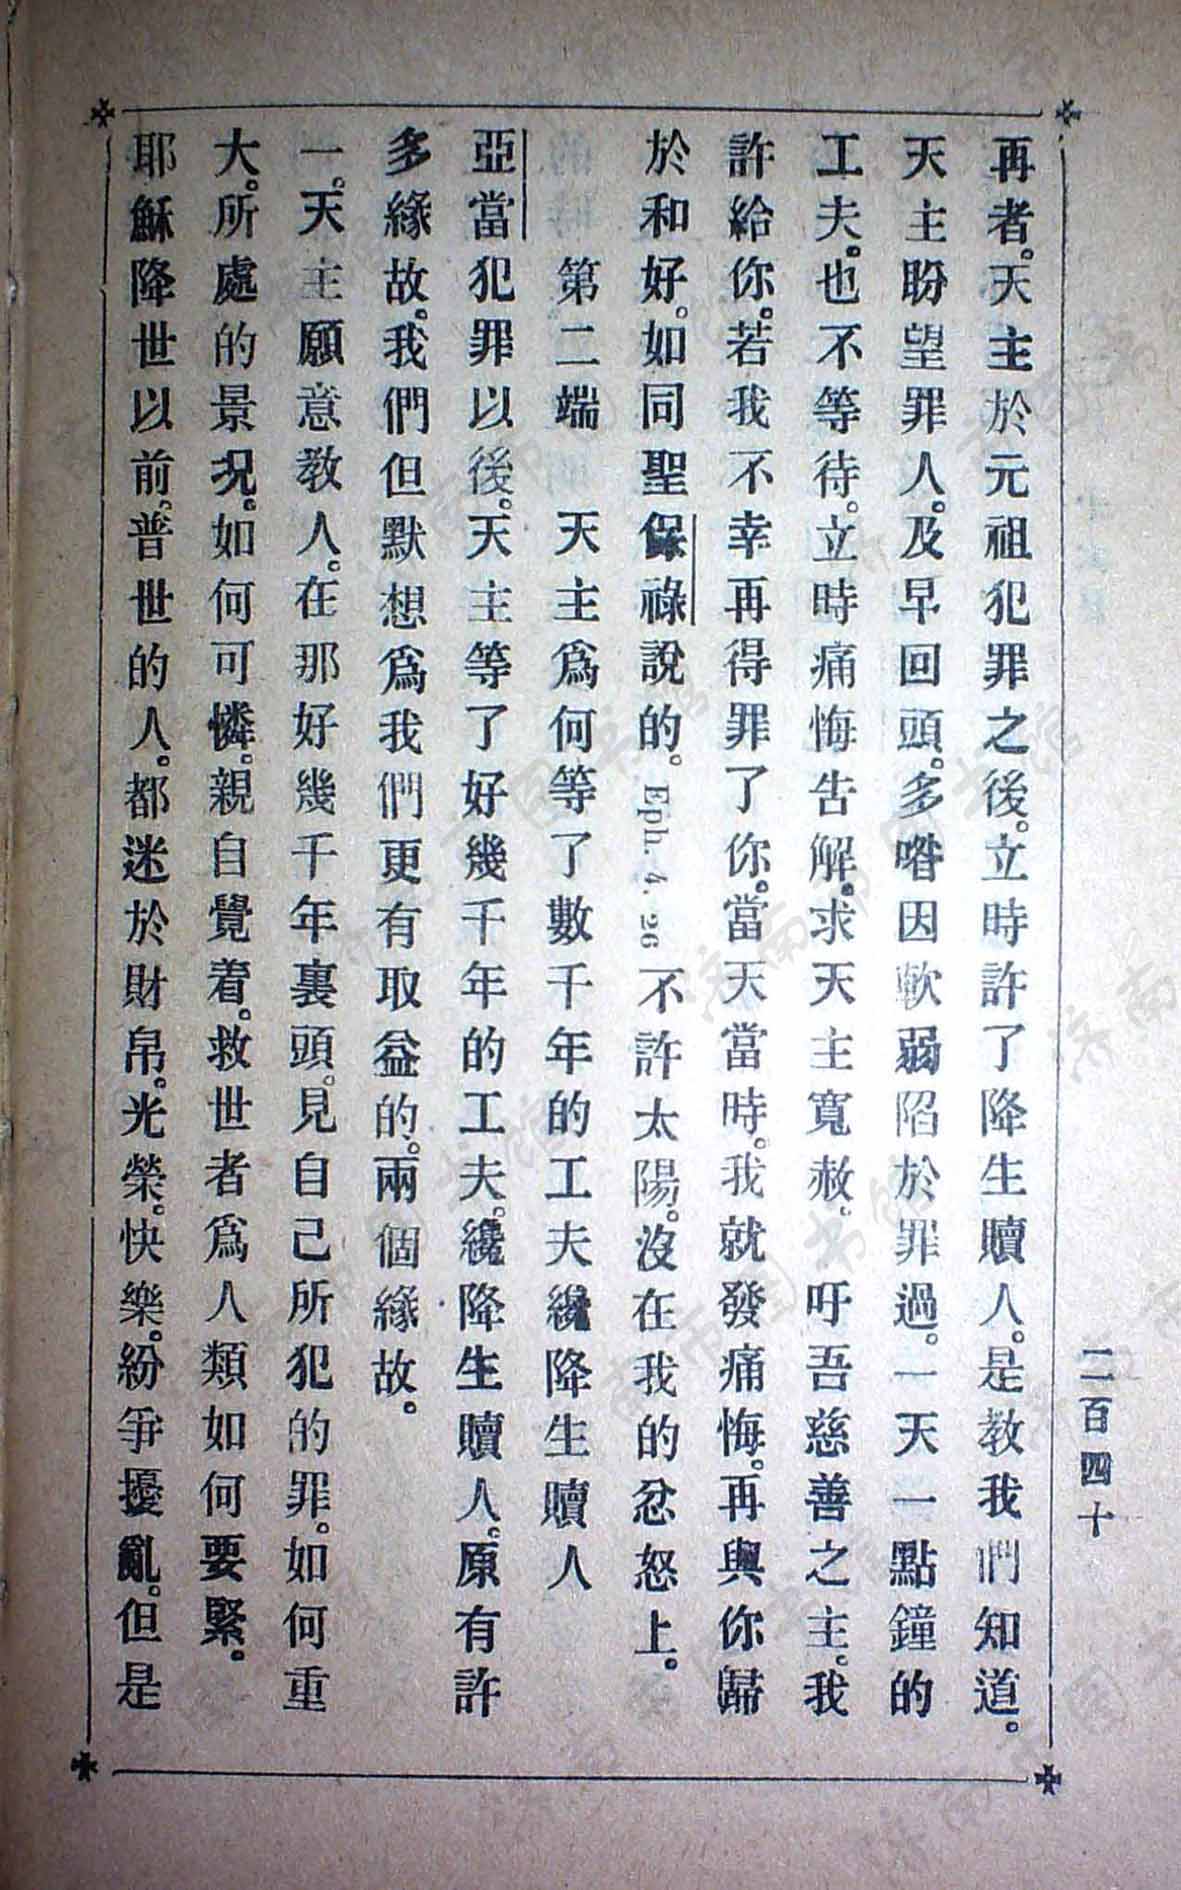 再者。天主於元祖犯罪之後。立時許了降生贖人。是教我們知道。
天主盼望罪人。及早回頭。多喒因軟弱陷於罪過。一天一點鐘的
工夫。也不等待。立時痛悔告解。求天主寬赦。吁吾慈善之主。我
許給你。若我不幸再得罪了你。當天當時。我就發痛悔。再與你歸
於和好。如同聖保祿說的。Eph. 4. 26 不許太陽。沒在我的忿怒上。
第二端 天主爲何等了數千年的工夫纔降生贖人
亞當犯罪以後。天主等了好幾千年的工夫。纔降生贖人。原有許
多緣故。我們但默想爲我們更有取益的。兩個緣故。
一。天主願意教人。在那好幾千年裏頭。見自己所犯的罪。如何重
大。所處的景况。如何可憐。親自覺着。救世者爲人類如何要緊。
耶穌降世以前。普世的人。都迷於財帛。光榮。快樂。紛爭擾亂。但是
二百四十
济南市图书馆